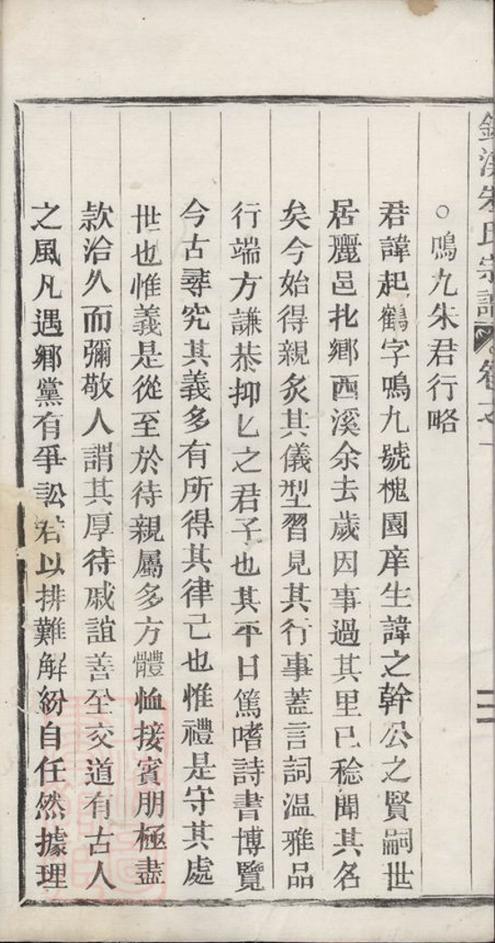 朱氏宗譜
○鳴九朱君行略
君諱起鶴字鳴九號槐園庠生諱之幹公之賢嗣世
居麗邑北鄉西溪余去歲因事過其里已稔聞其名
矣今始得親炙其儀型習見其行事蓋言詞溫雅品
行端方謙恭抑七之君子也其平日篤嗜詩書博覽
今古尋究其義多有所得其律己也惟禮是守其處
世也惟義是從至於待親屬多方體恤接賓朋極盡
款洽久而彌敬人謂其厚待戚誼善全交道有古人
之風凡遇鄉黨有爭訟君以排難解紛自任然據理